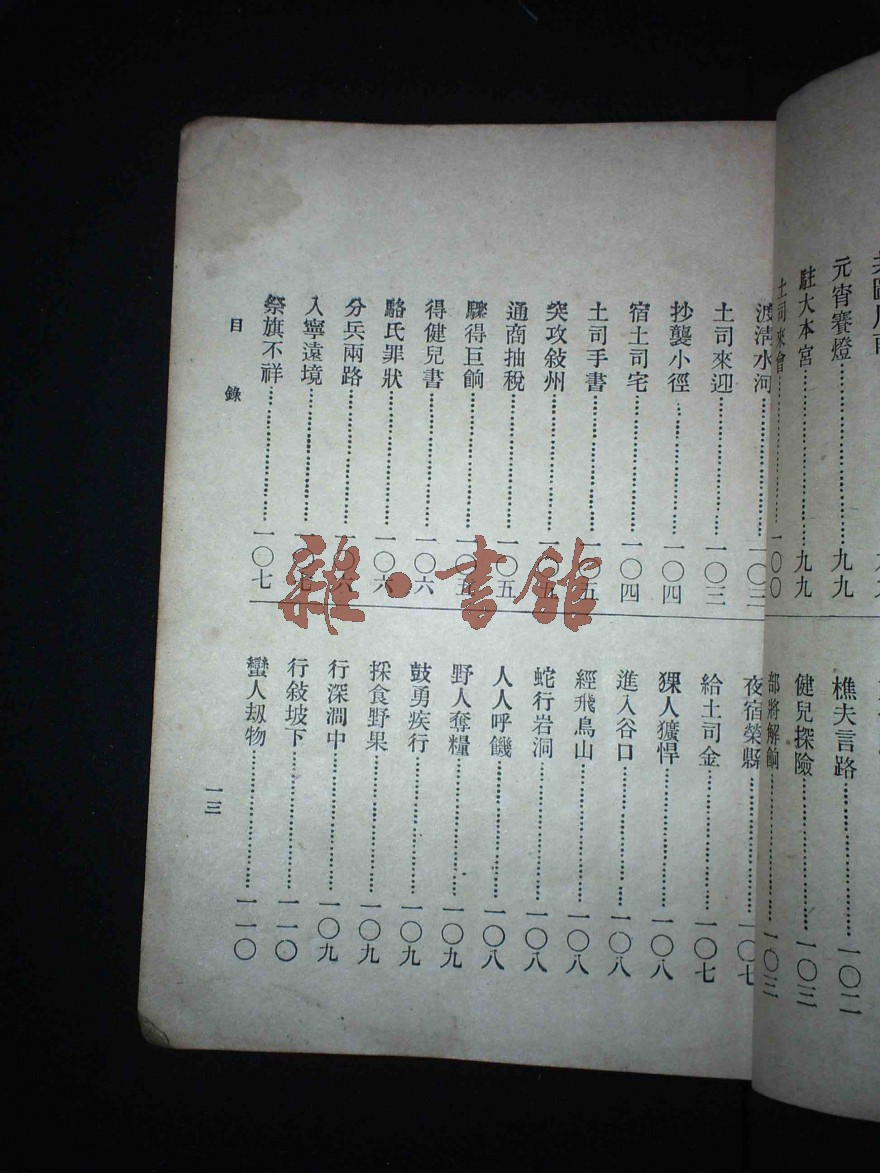 元宵賽燈……九九
駐大本宮……九九
土司來會……一〇〇
樵夫言路……一〇二
健兒探險……一〇三
部將解餉……一〇三
渡淸水河……一〇三
土司來迎……一〇三
抄襲小徑……一〇四
宿土司宅……一〇四
土司手書……一〇五
突攻敍州……一〇五
通商抽稅……一〇五
驟得巨餉……一〇五
得健兒書……一〇六
駱氏罪狀……一〇六
分兵兩路……一〇六
入寧遠境……一〇七
祭旗不祥……一〇七
夜宿榮縣……一〇七
給土司金……一〇七
猓人獷悍……一〇八
進入谷口……一〇八
經飛鳥山……一〇八
蛇行岩洞……一〇八
人人呼饑……一〇八
野人奪糧……一〇九
鼓勇疾行……一〇九
採食野果……一〇九
行深澗中……一〇九
行敍坡下……一一〇
蠻人刼物……一一〇
目錄
一三
雜·書館